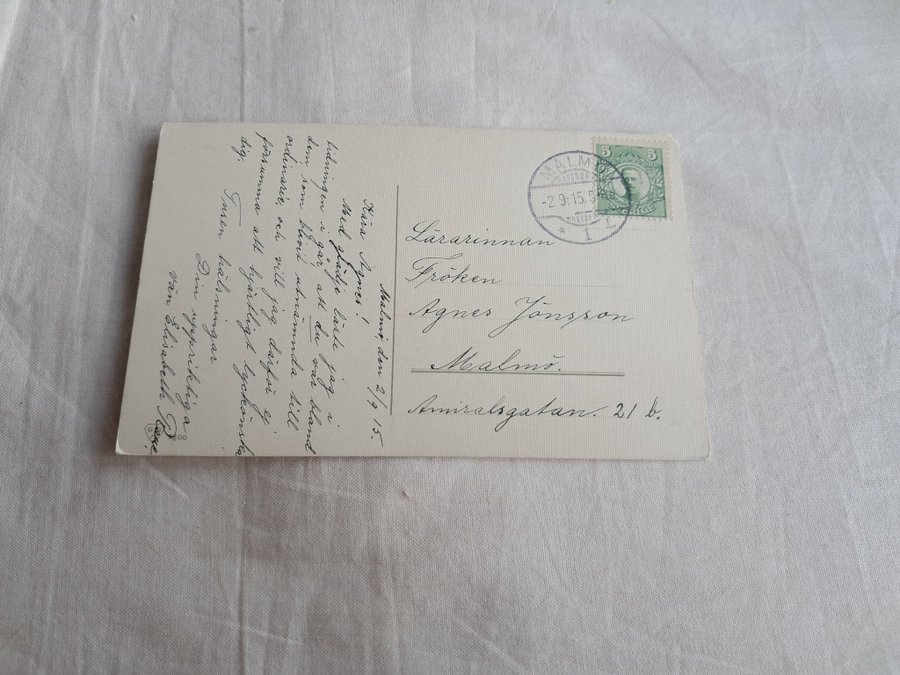 Malmö, den 2/9 15.
Kära Agnes!
Med glädje läste jag i
tidningen i går att du var bland
dem som blivit utnämnda till
ordinarie, och vill jag därför ej
försumma att hjärtligt lyckönska
dig.
Tusen hälsningar
Din uppriktiga
vän Elisabeth
MALMÖ
-2.9.15.
1
5 5
SVERIGE
Lärarinnan
Fröken
Agnes Jönsson
Malmö.
Amiralsgatan. 21 b.